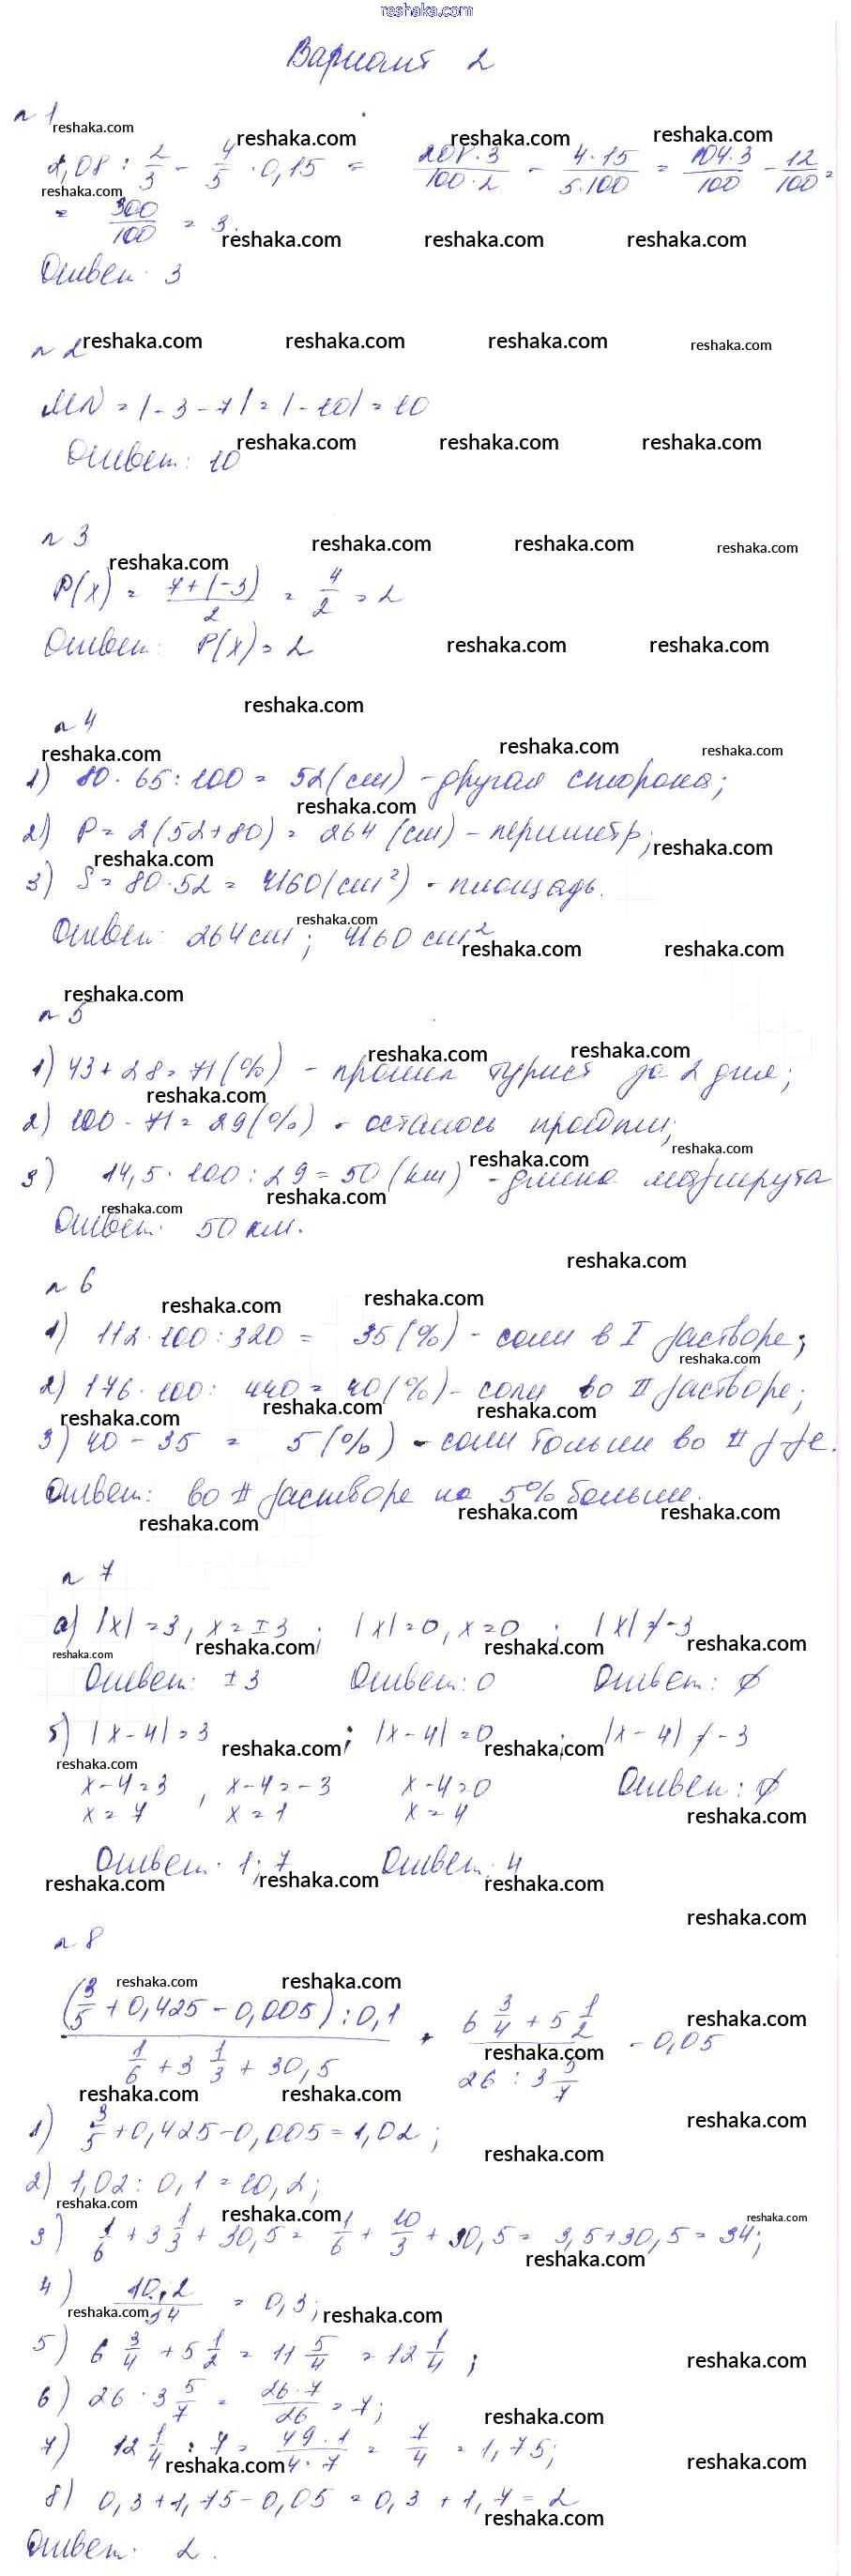 reshaka.com
Вариант 2
n 1
2,08 : 2/3 - 4/5 · 0,15 = 208·3/100·2 - 4·15/5·100 = 104·3/100 - 12/100 =
= 300/100 = 3.
Ответ: 3
n 2
MN = |-3-7| = |-10| = 10
Ответ: 10
n 3
P(x) = 7+(-3)/2 = 4/2 = 2
Ответ: P(x) = 2
n 4
1) 80 · 65 : 100 = 52 (см) - другая сторона;
2) P = 2(52+80) = 264 (см) - периметр;
3) S = 80 · 52 = 4160 (см²) - площадь.
Ответ: 264 см; 4160 см²
n 5
1) 43 + 28 = 71 (%) - прошел турист за 2 дня;
2) 100 - 71 = 29 (%) - осталось пройти;
3) 14,5 · 100 : 29 = 50 (км) - длина маршрута
Ответ: 50 км.
n 6
1) 112 · 100 : 320 = 35 (%) - соли в I растворе;
2) 176 · 100 : 440 = 40 (%) - соли во II растворе;
3) 40 - 35 = 5 (%) - соли больше во II р-ре.
Ответ: во II растворе на 5% больше.
n 7
а) |x| = 3, x = ±3 ; |x| = 0, x = 0 ; |x| ≠ -3
Ответ: ±3 Ответ: 0 Ответ: ∅
б) |x-4| = 3 ; |x-4| = 0 ; |x-4| ≠ -3
x-4 = 3 , x-4 = -3 x-4 = 0 Ответ: ∅
x = 7 x = 1 x = 4
Ответ: 1; 7 Ответ: 4
n 8
(3/5 + 0,425 - 0,005) : 0,1 / 1/6 + 3 1/3 + 30,5 + 6 3/4 + 5 1/2 / 26 : 3 5/7 - 0,05
1) 3/5 + 0,425 - 0,005 = 1,02;
2) 1,02 : 0,1 = 10,2;
3) 1/6 + 3 1/3 + 30,5 = 1/6 + 10/3 + 30,5 = 3,5 + 30,5 = 34;
4) 10,2/34 = 0,3;
5) 6 3/4 + 5 1/2 = 11 5/4 = 12 1/4;
6) 26 : 3 5/7 = 26·7/26 = 7;
7) 12 1/4 : 7 = 49·1/4·7 = 7/4 = 1,75;
8) 0,3 + 1,75 - 0,05 = 0,3 + 1,7 = 2
Ответ: 2.